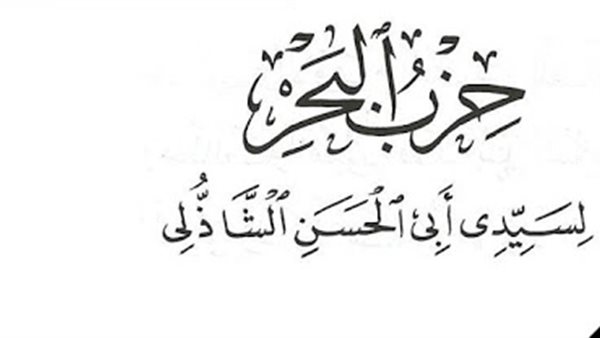 حِزْبُ ٱلْبَحْرِ
لِسَيِّدِى أَبِى ٱلْحَسَنِ ٱلشَّاذُلِى